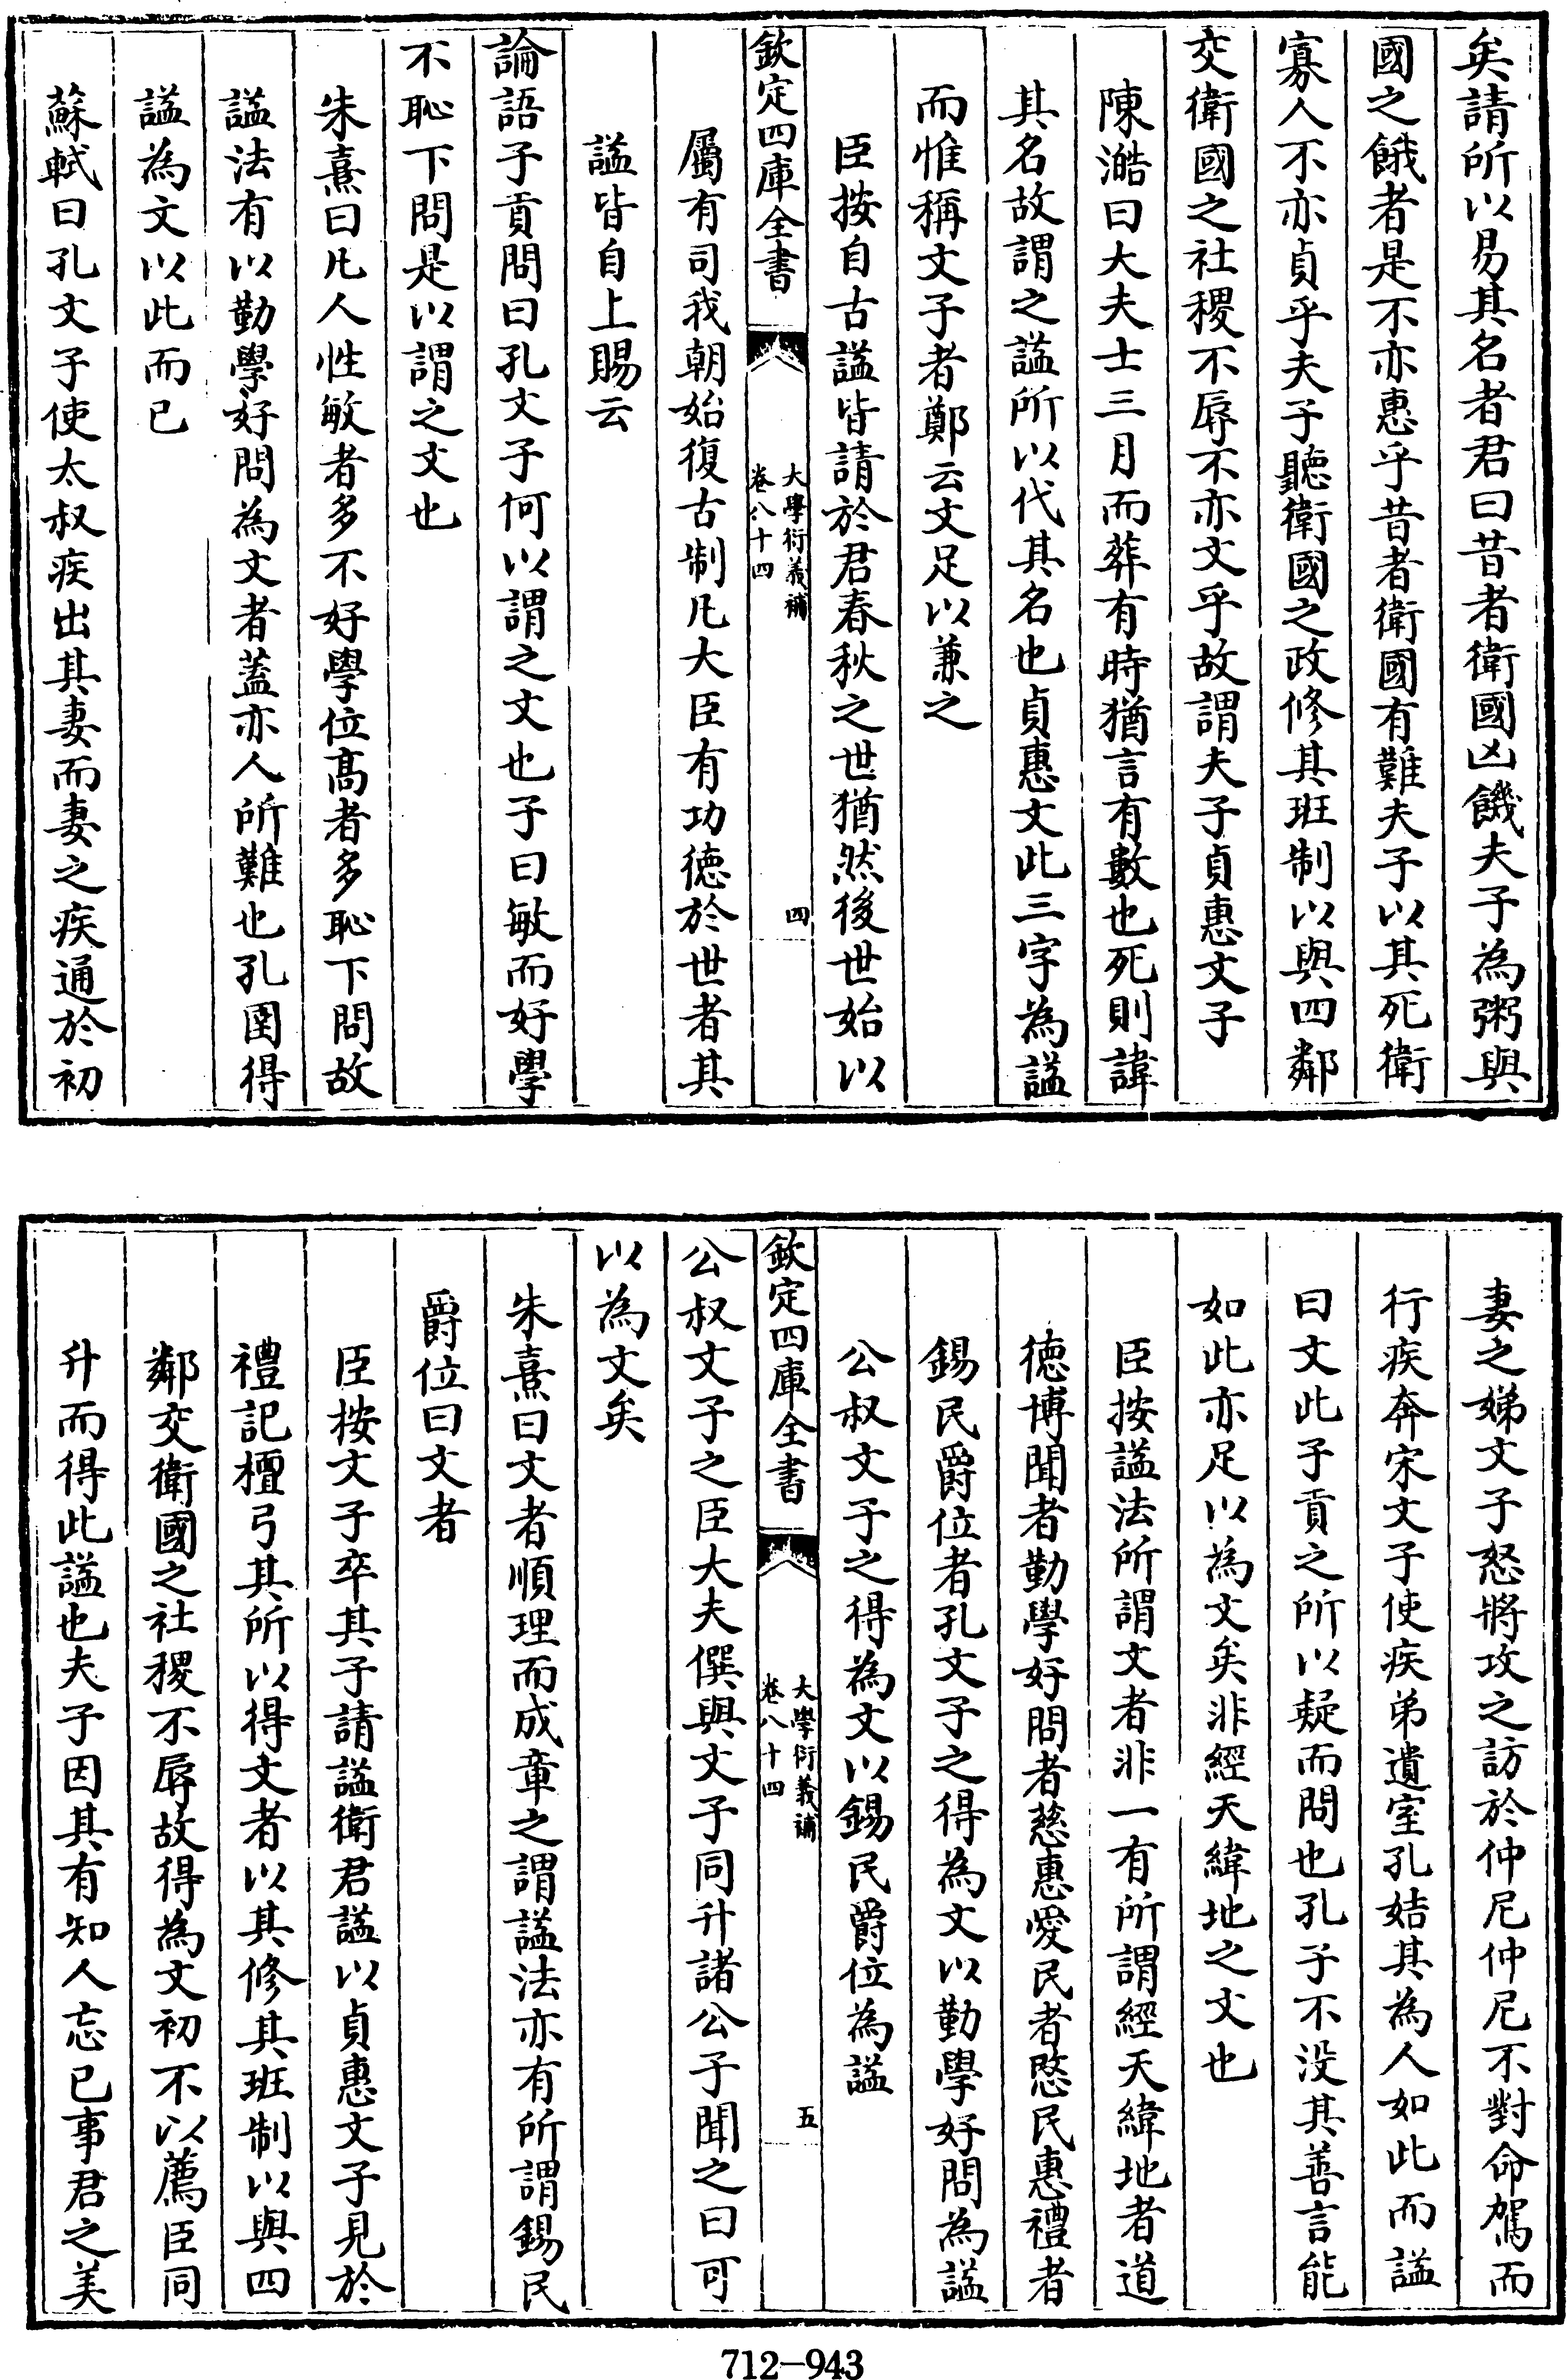 矣請所以易其名者君曰昔者衛國凶饑夫子為粥與
國之餓者是不亦惠乎昔者衛國有難夫子以其死衛
寡人不亦貞乎夫子聽衛國之政修其班制以與四鄰
交衛國之社稷不辱不亦文乎故謂夫子貞惠文子
陳澔曰大夫士三月而葬有時猶言有數也死則諱
其名故謂之諡所以代其名也貞惠文此三字為諡
而惟稱文子者鄭云文足以兼之
臣按自古諡皆請於君春秋之世猶然後世始以
欽定四庫全書
大學衍義補
卷八十四
四
屬有司我朝始復古制凡大臣有功徳於世者其
諡皆自上賜云
論語子貢問曰孔文子何以謂之文也子曰敏而好學
不恥下問是以謂之文也
朱熹曰凡人性敏者多不好學位髙者多恥下問故
諡法有以勤學好問為文者蓋亦人所難也孔圉得
諡為文以此而已
蘇軾曰孔文子使太叔疾出其妻而妻之疾通於初
妻之娣文子怒將攻之訪於仲尼仲尼不對命駕而
行疾奔宋文子使疾弟遺室孔姞其為人如此而諡
曰文此子貢之所以疑而問也孔子不没其善言能
如此亦足以為文矣非經天緯地之文也
臣按諡法所謂文者非一有所謂經天緯地者道
徳博聞者勤學好問者慈惠愛民者愍民惠禮者
錫民爵位者孔文子之得為文以勤學好問為諡
公叔文子之得為文以錫民爵位為諡
欽定四庫全書
大學衍義補
卷八十四
五
公叔文子之臣大夫僎與文子同升諸公子聞之曰可
以為文矣
朱熹曰文者順理而成章之謂諡法亦有所謂錫民
爵位曰文者
臣按文子卒其子請諡衛君諡以貞惠文子見於
禮記檀弓其所以得文者以其修其班制以與四
鄰交衛國之社稷不辱故得為文初不以薦臣同
升而得此諡也夫子因其有知人忘已事君之美
712-943